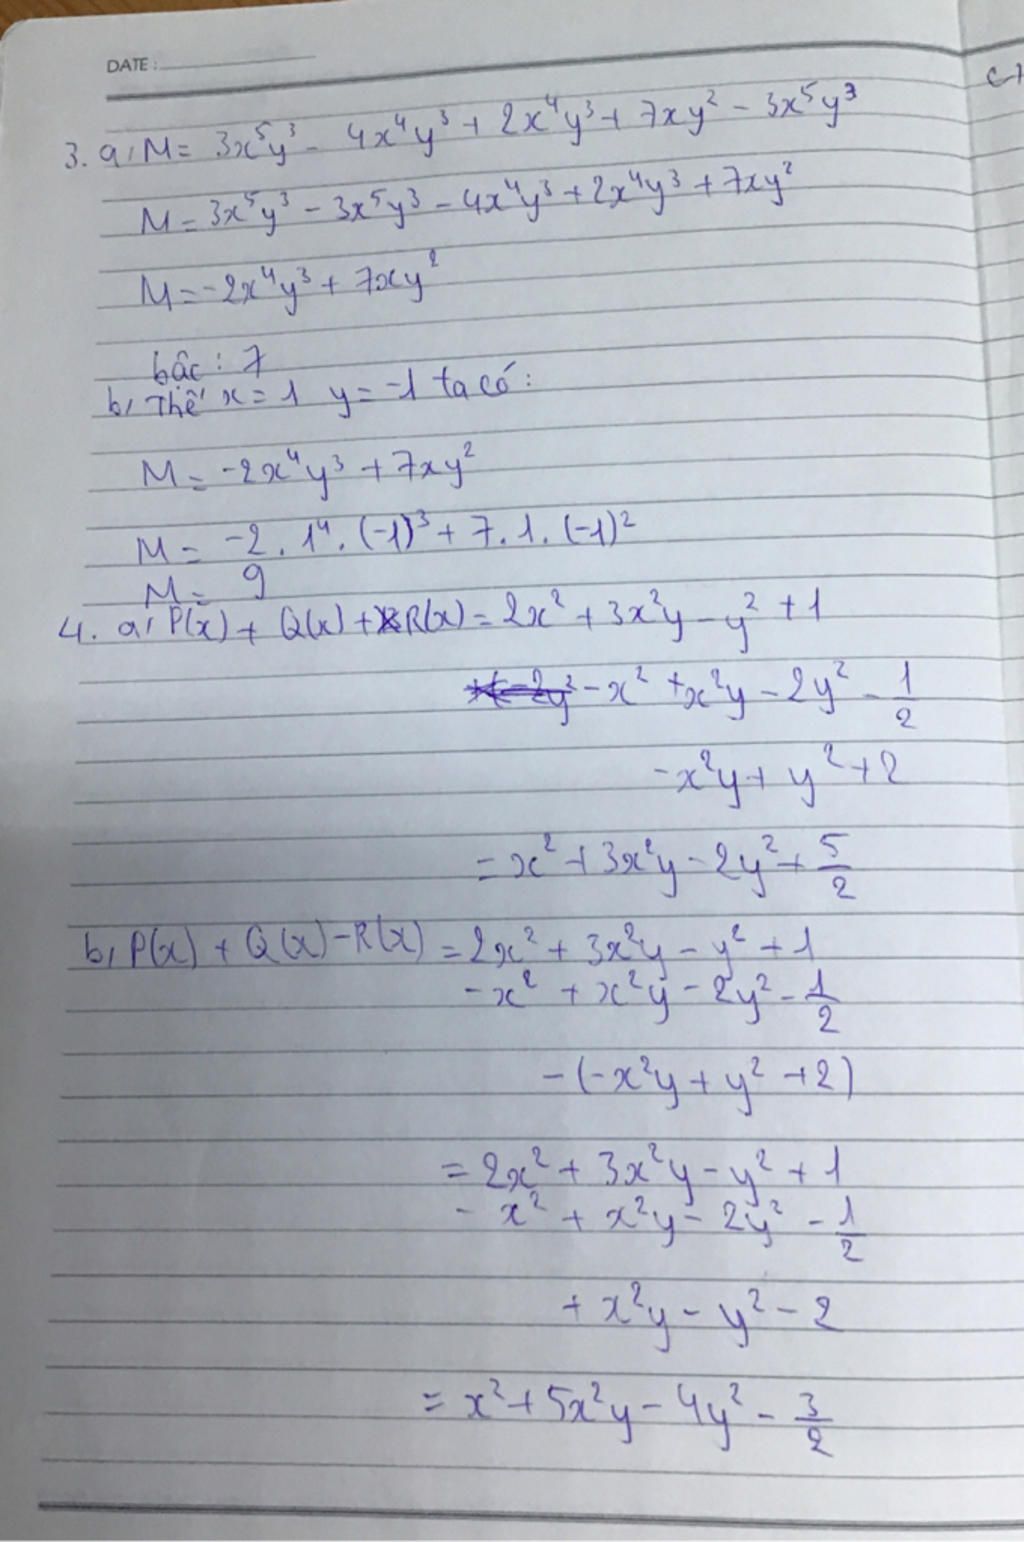 DATE :
3. a, M = 3x⁵y³ - 4x⁴y³ + 2x⁴y³ + 7xy² - 3x⁵y³
M = 3x⁵y³ - 3x⁵y³ - 4x⁴y³ + 2x⁴y³ + 7xy²
M = -2x⁴y³ + 7xy²
bậc : 7
b, Thế x = 1 y = -1 ta có :
M = -2x⁴y³ + 7xy²
M = -2 . 1⁴ . (-1)³ + 7 . 1 . (-1)²
M = 9
4. a, P(x) + Q(x) + R(x) = 2x² + 3x²y - y² + 1
- x² + x²y - 2y² - 1/2
- x²y + y² + 2
= x² + 3x²y - 2y² + 5/2
b, P(x) + Q(x) - R(x) = 2x² + 3x²y - y² + 1
- x² + x²y - 2y² - 1/2
- (-x²y + y² + 2)
= 2x² + 3x²y - y² + 1
- x² + x²y - 2y² - 1/2
+ x²y - y² - 2
= x² + 5x²y - 4y² - 3/2